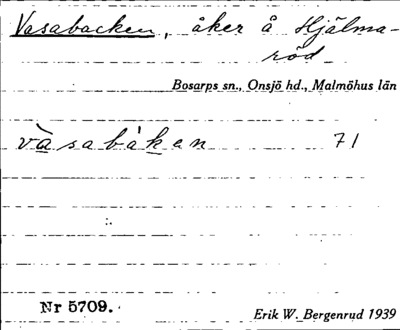 Vasabacken, åker å Hjälma-
röd
Bosarps sn., Onsjö hd., Malmöhus län
vàsabáken 71
Nr 5709.
Erik W. Bergenrud 1939